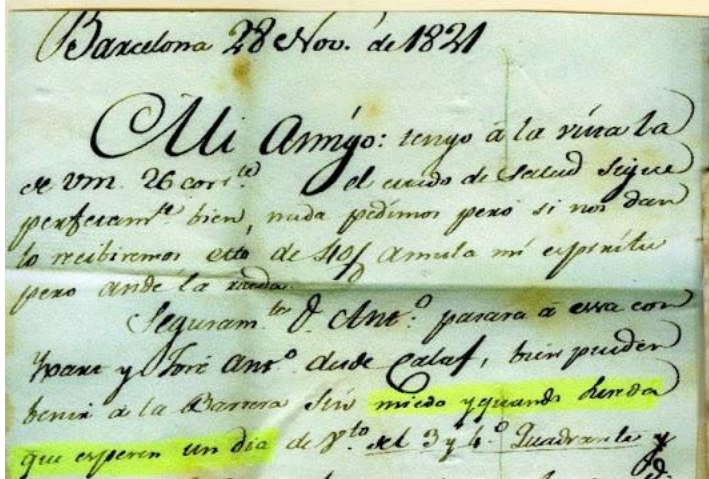 Barcelona 28 Nov.ʳ de 1821
Mi Amigo: tengo á la vista la
de vm. 26 corr.te el estado de Salud sigue
perfectam.te bien, nada pedimos pero si nos dan
lo recibiremos esto de 40 p% anula mi espiritu
pero ande la rueda.
Seguram.te D. Ant.º pasara á essa con
y José Ant.º desde Calaf, bien pueden
benir á la Barrera sin miedo y quando
que esperen un dia de V.to del 3 y 4.º Quadrante y